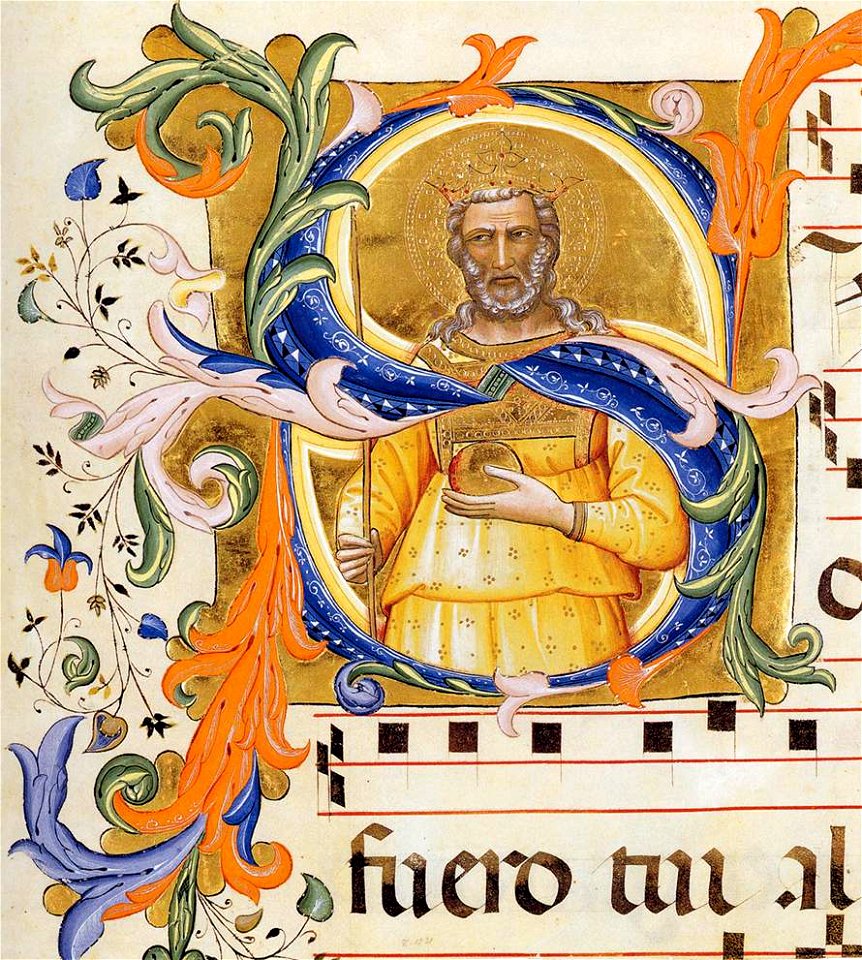 S
fuero tui al